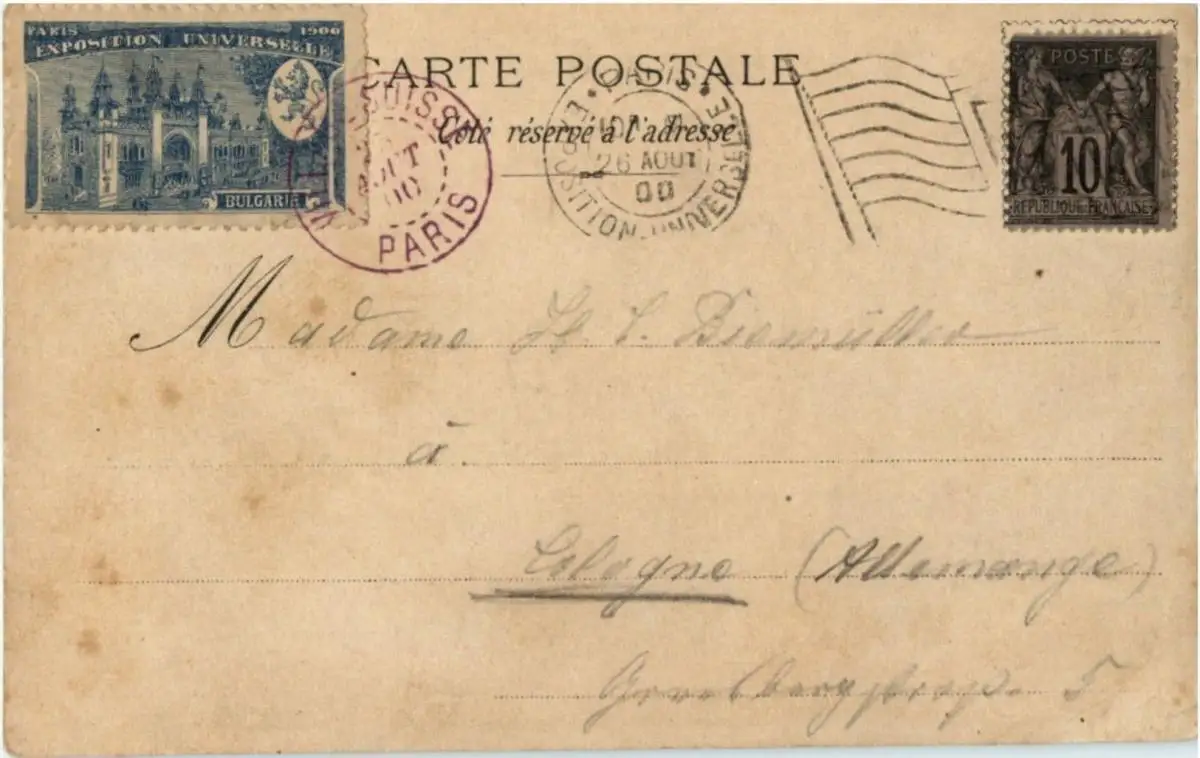 PARIS 1900
EXPOSITION UNIVERSELLE
BULGARIE
SUISSE
AOUT
00
PARIS
CARTE POSTALE
Côté réservé à l'adresse
PARIS
26 AOUT
00
EXPOSITION UNIVERSELLE
POSTE
10
REPUBLIQUE FRANÇAISE
Madame
à
Cologne (Allemange)
5